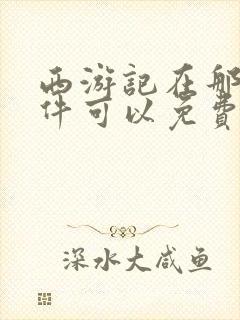 西游記在那
件可以免費
深水大咸鱼